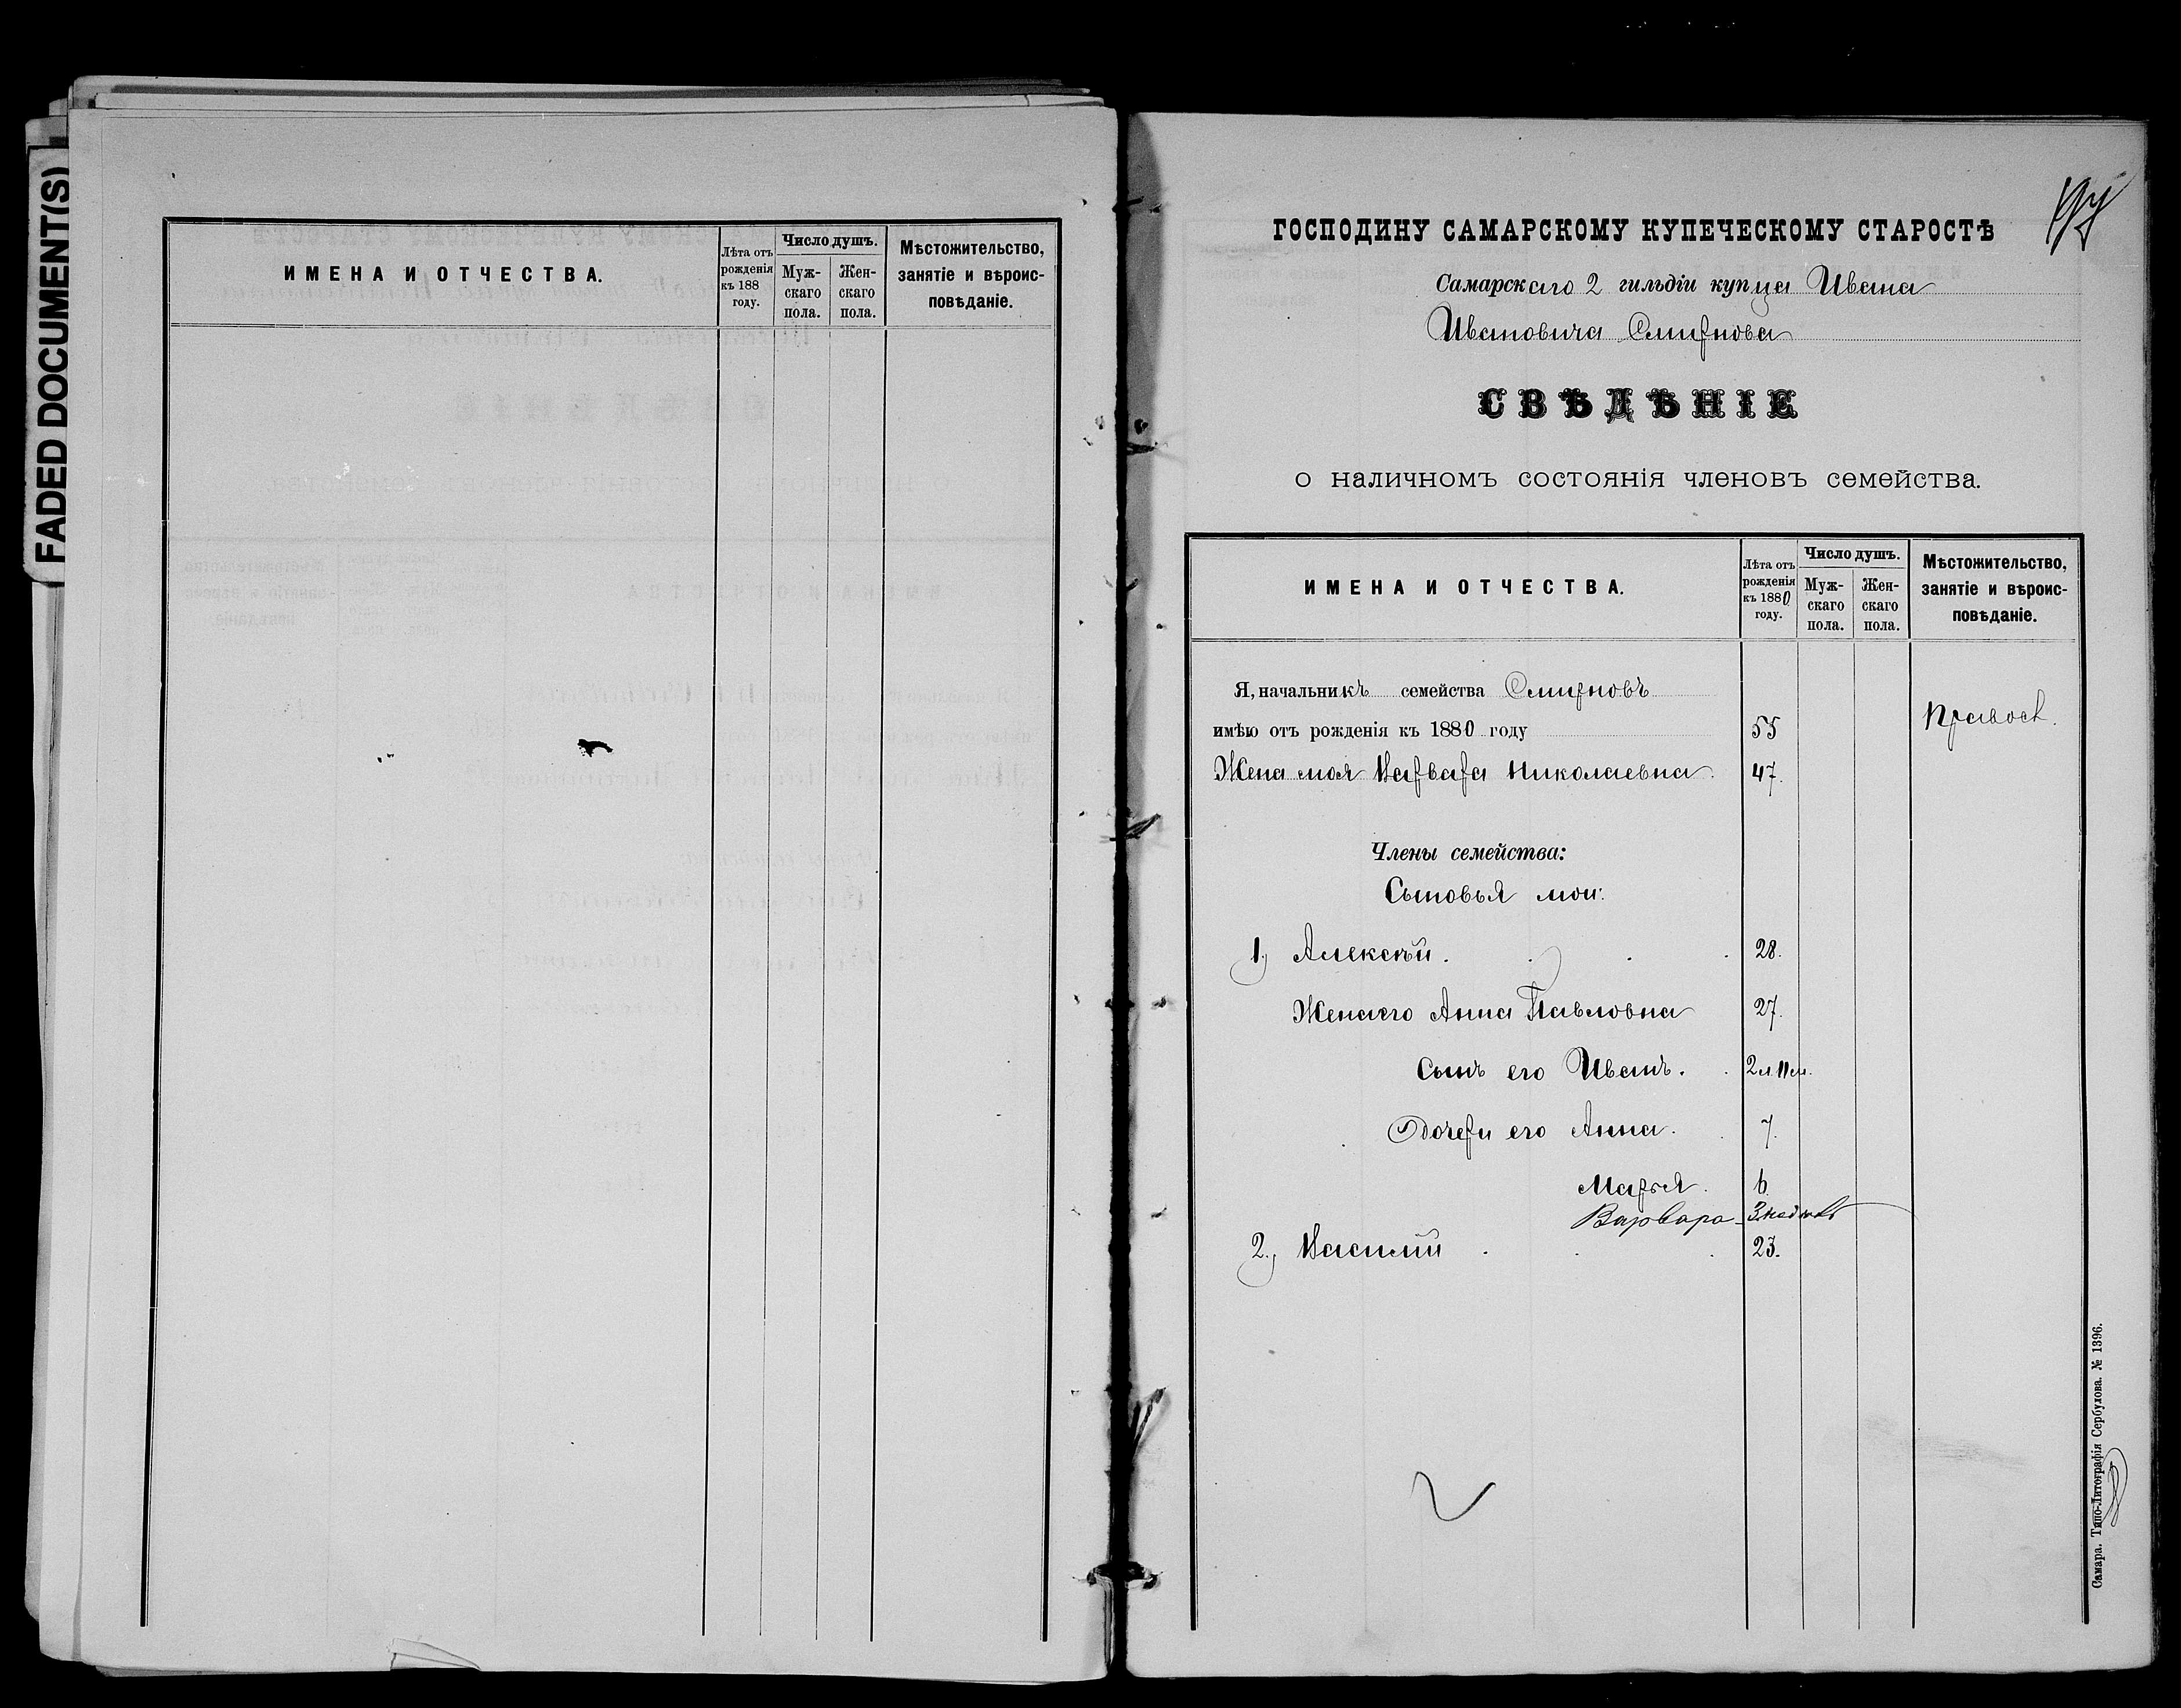 FADED DOCUMENT(S)
ИМЕНА И ОТЧЕСТВА.
Лѣта отъ рожденія къ 188 году.
Число душъ.
Мужскаго пола.
Женскаго пола.
Мѣстожительство, занятіе и вѣроисповѣданіе.
97
ГОСПОДИНУ САМАРСКОМУ КУПЕЧЕСКОМУ СТАРОСТѢ
Самарскаго 2 гильдіи купца Ивана
Ивановича Смирнова
СВѢДѢНІЕ
о наличномъ состоянія членовъ семейства.
ИМЕНА И ОТЧЕСТВА.
Лѣта отъ рожденія къ 1880 году.
Число душъ.
Мужскаго пола.
Женскаго пола.
Мѣстожительство, занятіе и вѣроисповѣданіе.
Я, начальникъ семейства Смирновъ
имѣю отъ рожденія къ 1880 году 55 Правосл.
Жена моя Варвара Николаевна. 47.
Члены семейства:
Сыновья мои:
1, Алексѣй. 28.
Жена его Анна Павловна 27.
Сынъ его Иванъ. 2 л. 11 м.
Дочери его Анна. 7.
Марья. 6
Варвара - 3 недѣль
2., Василій 23.
Самара. Типо-Литографія Сербулова. № 1396.